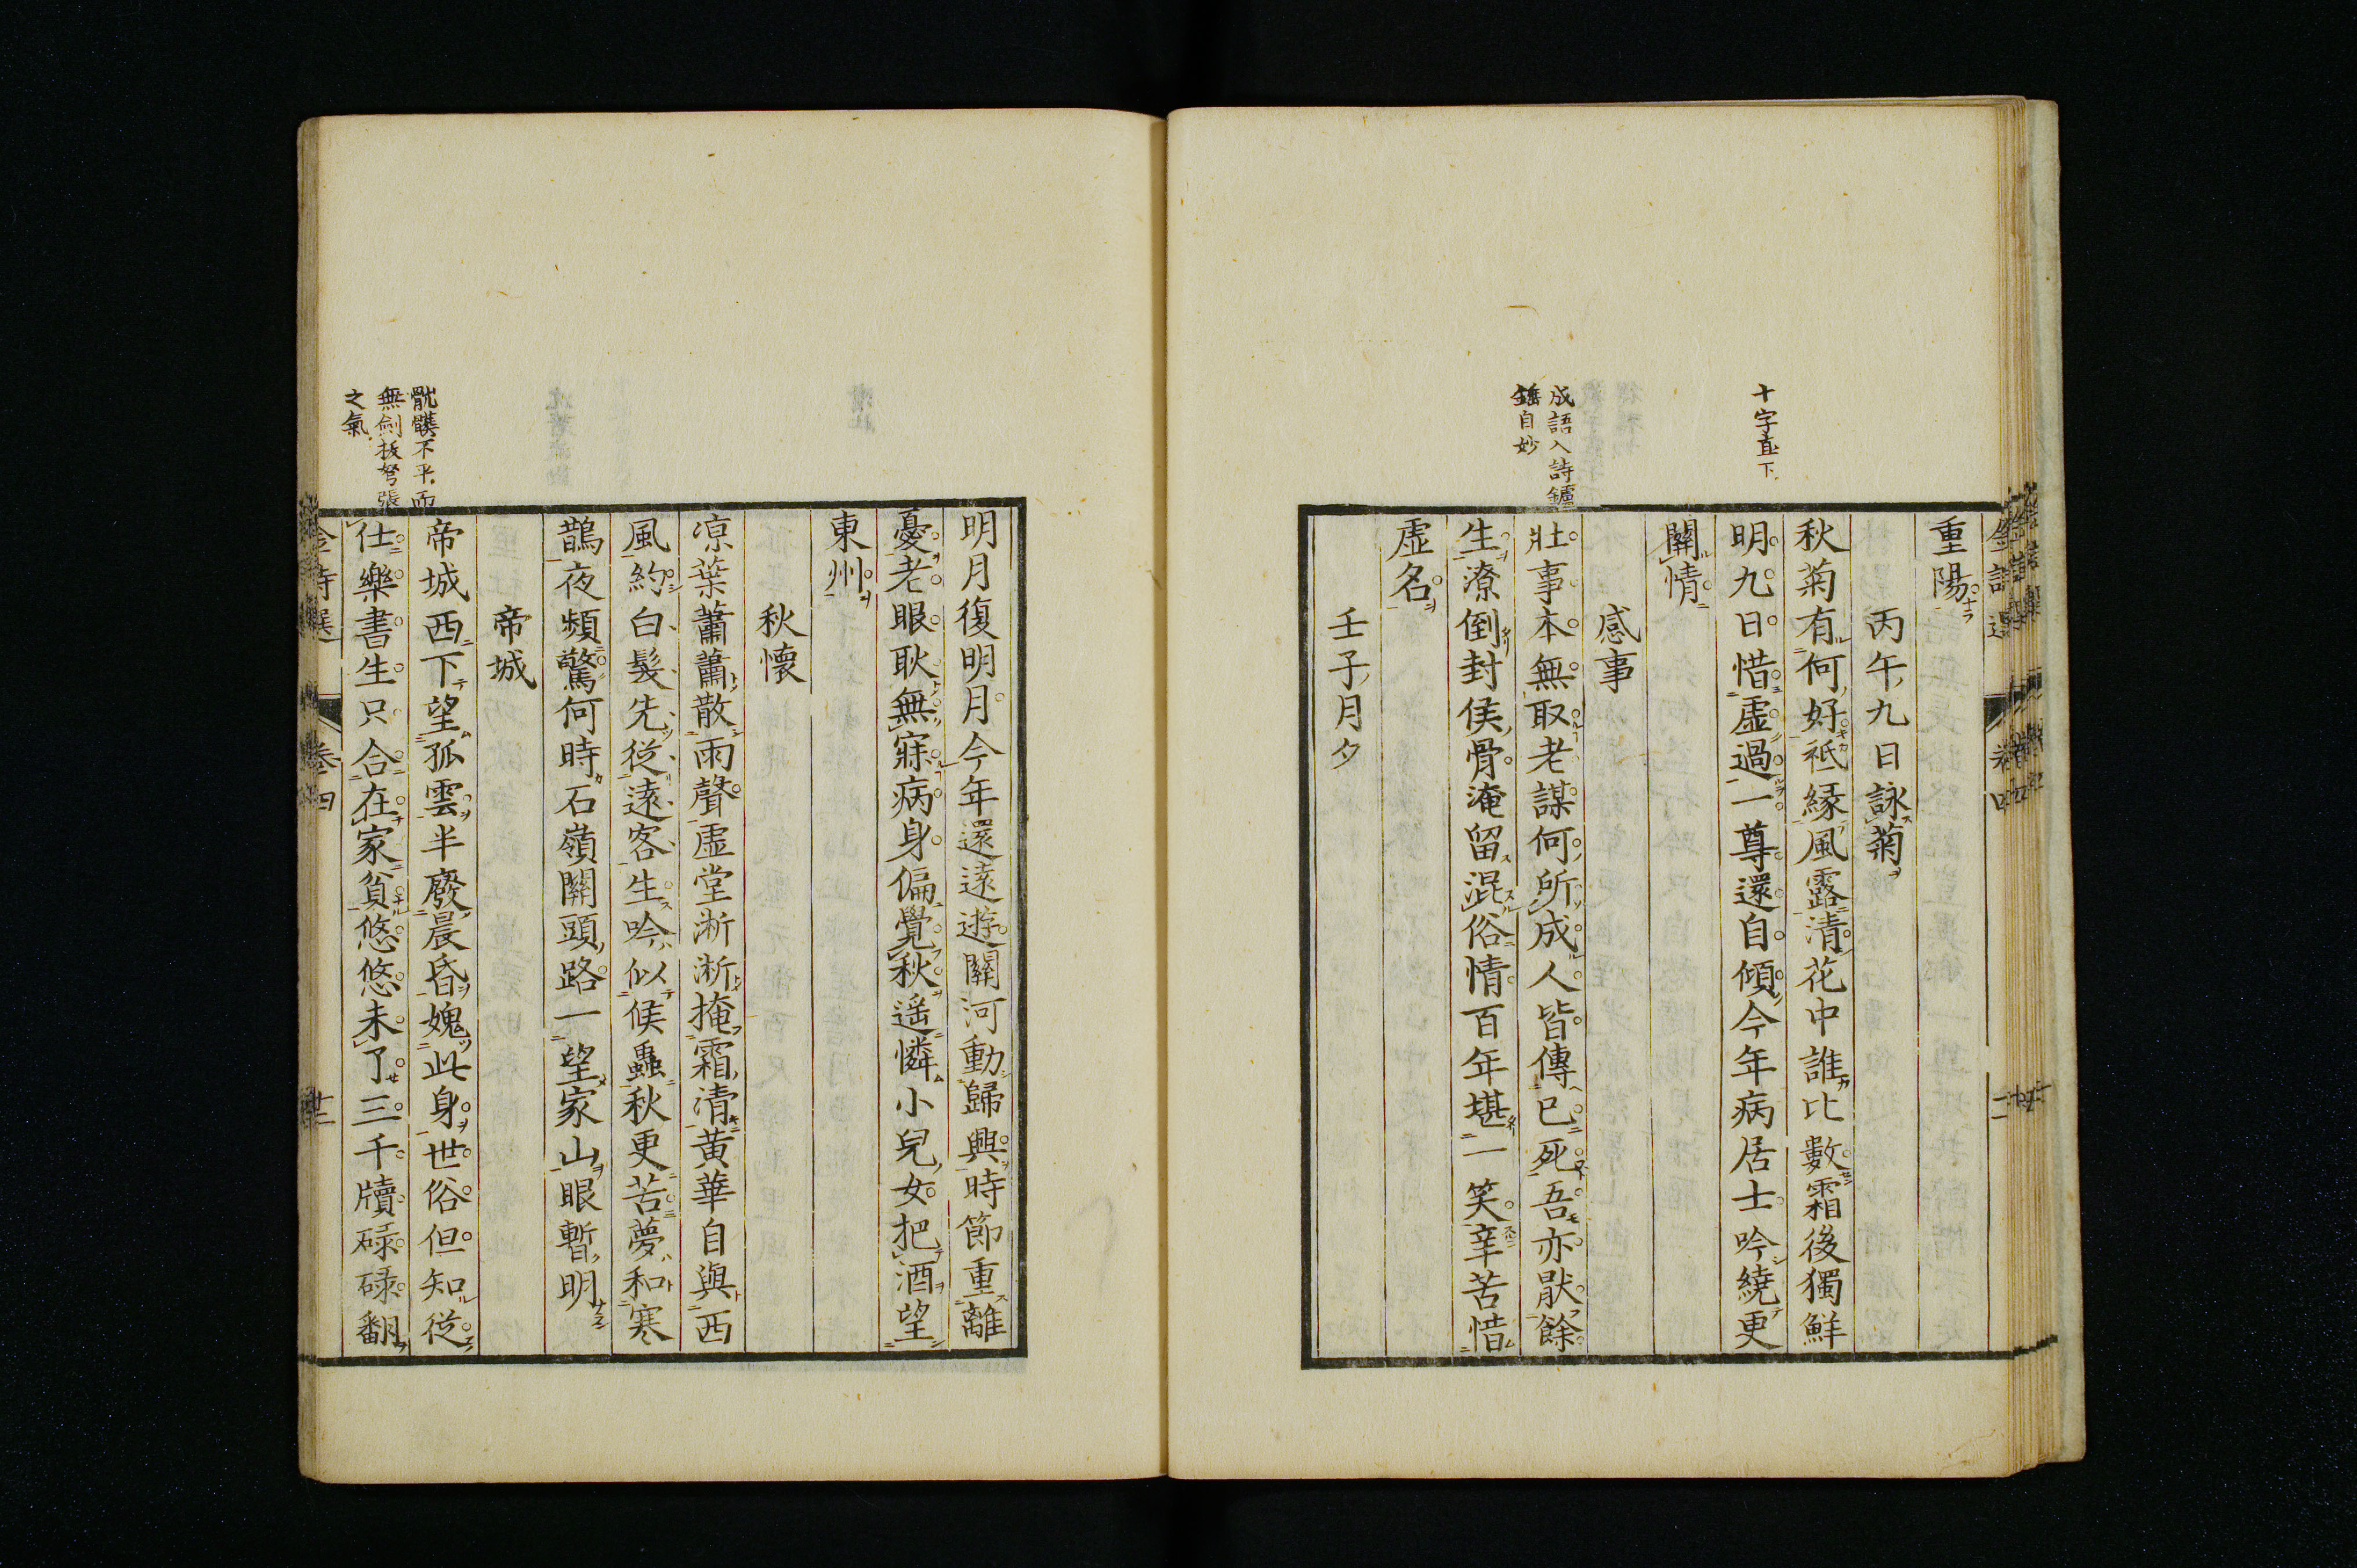 十字直下
成語入詩鑪
錘自妙
重陽
丙午九日詠菊
秋菊有何好祗緣風露清花中誰比數霜後獨鮮
明九日惜虛過一尊還自傾今年病居士吟繞更
關情
感事
壯事本無取老謀何所成人皆傳已死吾亦厭餘
生潦倒封侯骨淹留混俗情百年堪一笑辛苦惜
虛名
壬子月夕
骯髒不平而
無劍拔弩張
之氣
明月復明月今年還遠遊關河動歸興時節重離
憂老眼耿無寐病身偏覺秋遥憐小兒女把酒望
東州
秋懷
凉葉蕭蕭散雨聲虛堂淅淅掩霜清黃華自與西
風約白髮先從遠客生吟似候蟲秋更苦夢和寒
鵲夜頻驚何時石嶺關頭路一望家山眼暫明
帝城
帝城西下望孤雲半廢晨昏媿此身世俗但知從
仕樂書生只合在家貧悠悠未了三千牘碌碌翻
卷四